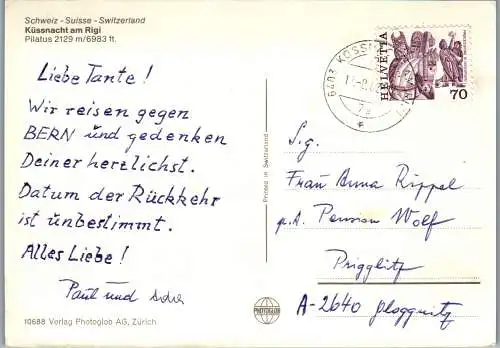 Schweiz - Suisse - Switzerland
Küssnacht am Rigi
Pilatus 2129 m/6983 ft.
Liebe Tante!
Wir reisen gegen
BERN und gedenken
Deiner herzlichst.
Datum der Rückkehr
ist unbestimmt.
Alles Liebe!
Paul und
10688 Verlag Photoglob AG, Zürich
Printed in Switzerland
PHOTOGLOB
HELVETIA
70
6403 KÜSSN
S.g.
Frau Anna Rippel
p.A. Pension Wolf
Prigglitz
A-2640 Gloggnitz